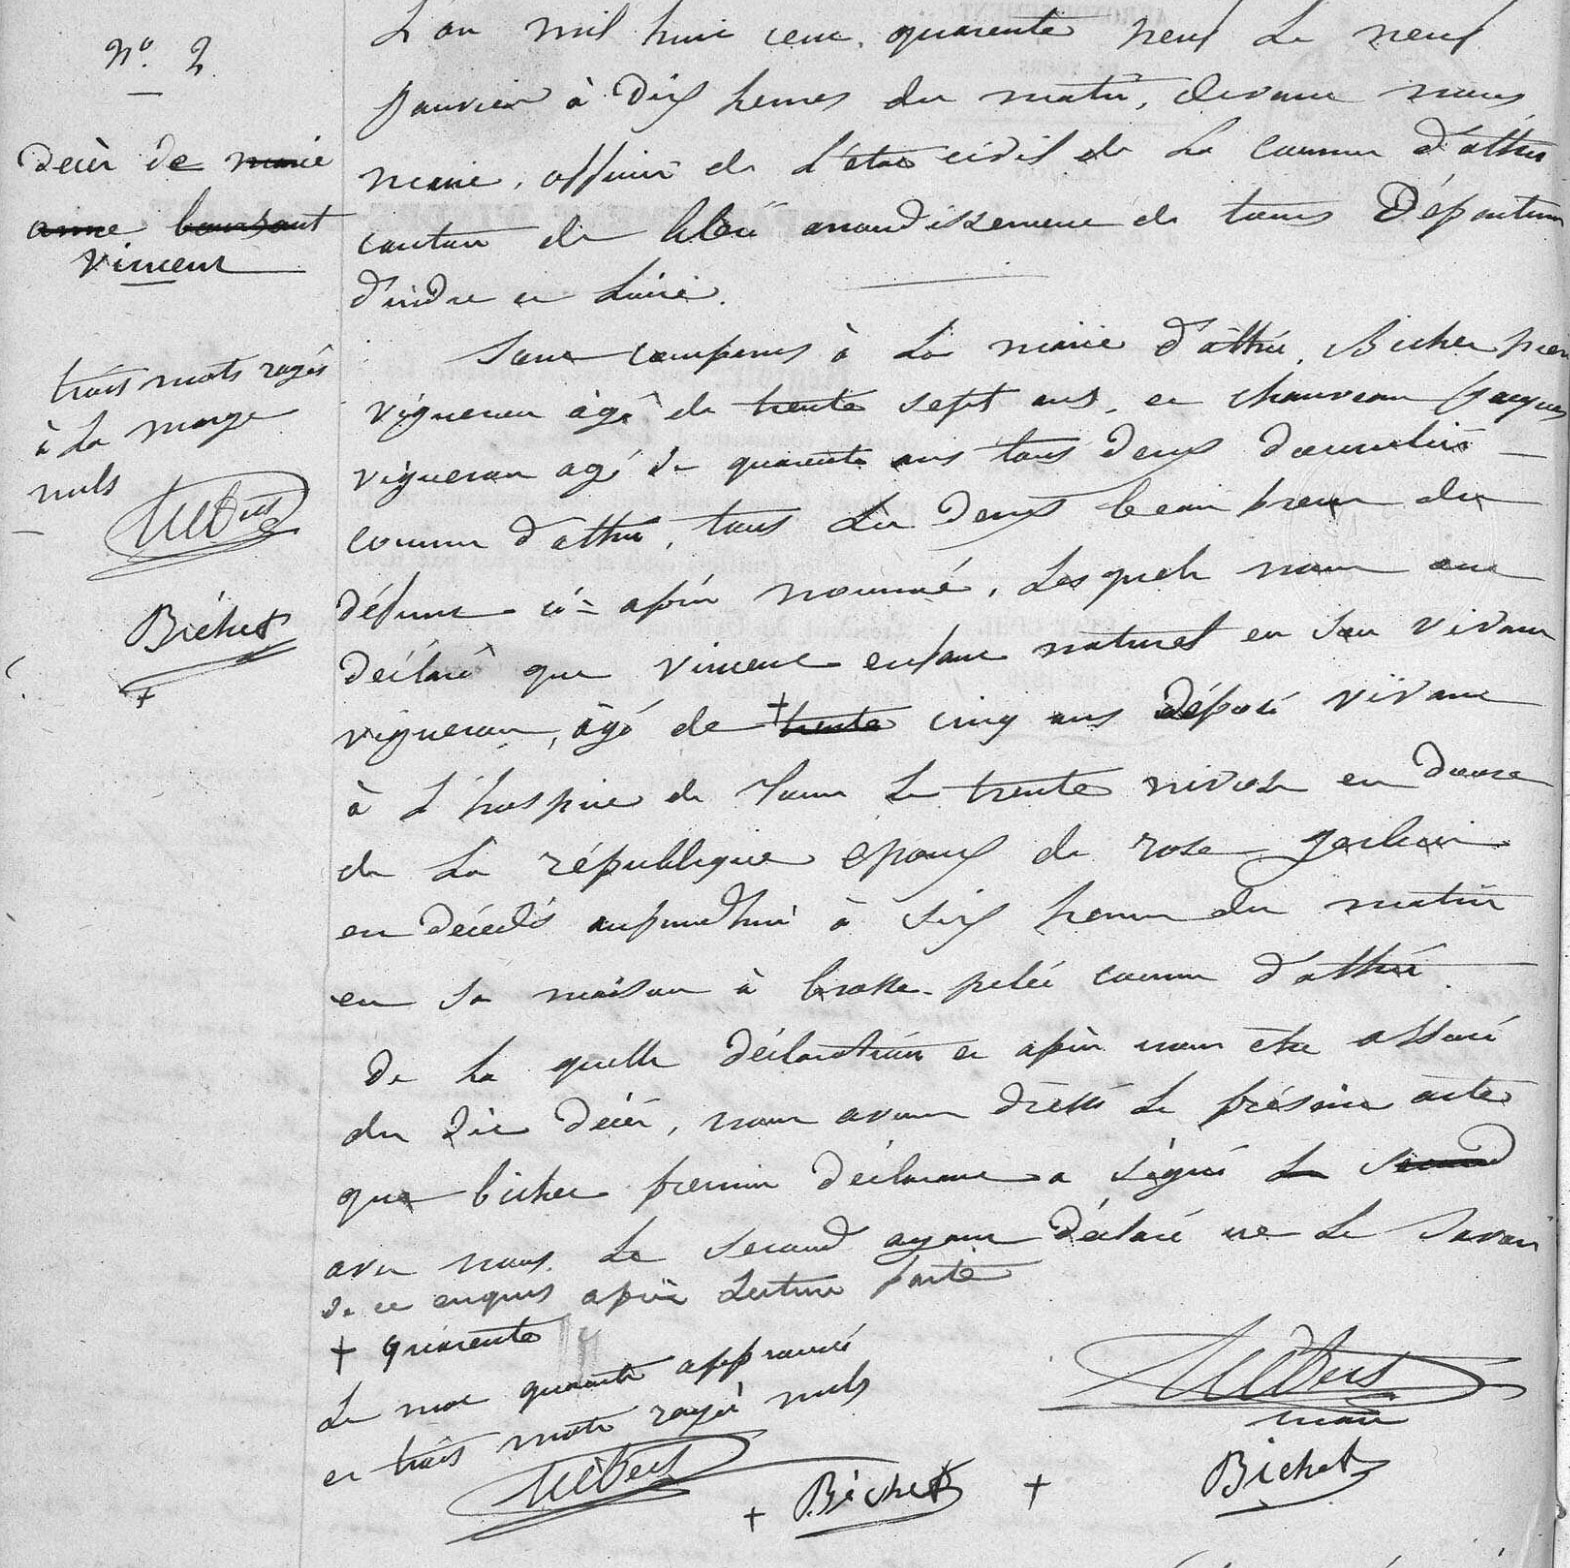 N.º 2
décès de marie
anne boursaut
Vincent
trois mots rayés
à la marge
nuls
Bichet
L'an mil huit cent quarante neuf le neuf
janvier à dix heures du matin, devant nous
maire, officier de l'état civil de la commune d'athée
canton de bléré arrondissement de tours Département
d'indre et Loire.
Sont comparus à la mairie d'athée, Bichet
vigneron âgé de trente sept ans, et chauveau jacques
vigneron agé de quarante ans tous deux domiciliés
commune d'athée, tous les deux beau frere du
défunt ci-après nommé, lesquels nous ont
déclaré que vincent enfant naturel en son vivant
vigneron, âgé de + trente cinq ans déposé vivant
à L'hospice de Tours le trente nivose an douze
de la république epoux de rose
est décédé aujourdhui à six heures du matin
en sa maison à brosse pelée commune d'athée.
De la quelle déclaration et après nous être assuré
du dit décès, nous avons dressé le présent acte
que bichet premier déclarant a signé le second
avec nous. Le second ayant déclaré ne le savoir
de ce enquis après lecture faite
+ quarante
le mot quarante approuvé
et trois mots rayés nuls
maire
+ Bichet + Bichet